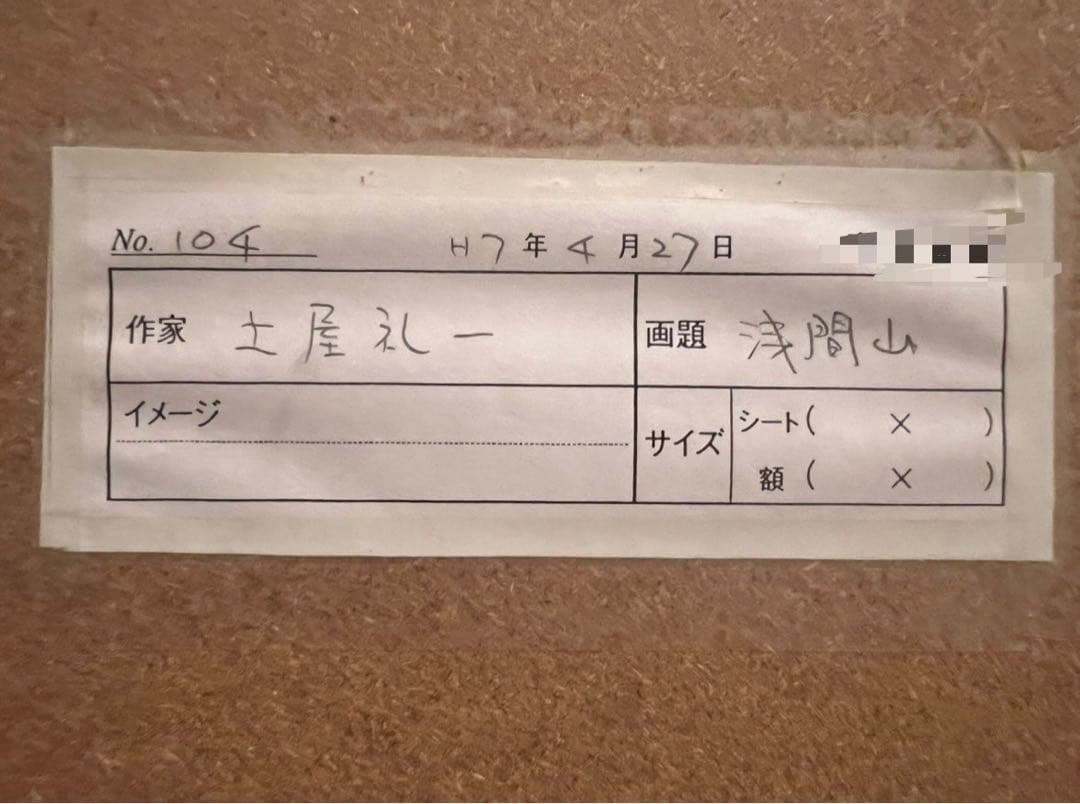 No. 104 H7年4月27日
作家 土屋礼一 画題 浅間山
イメージ サイズ シート( × )
額 ( × )